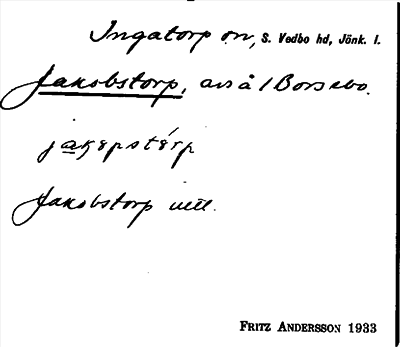 Ingatorp sn, S. Vedbo hd, Jönk. l.
Jakobstorp, avs å 1 Borsebo.
jakɐpstórp
Jakobstorp utt.
FRITZ ANDERSSON 1933